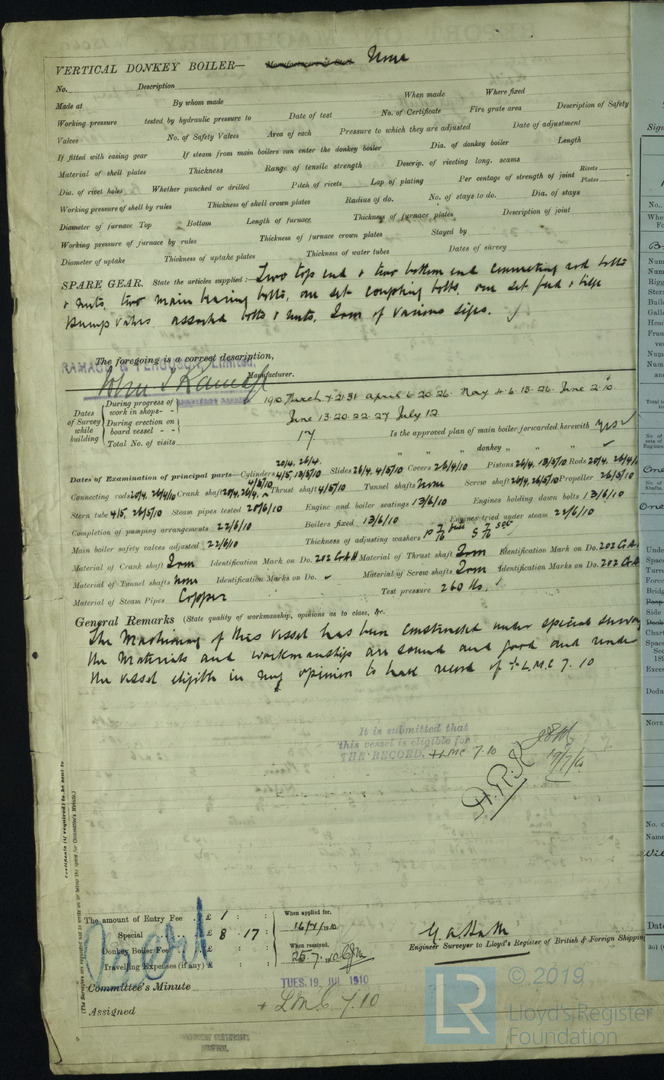 VERTICAL DONKEY BOILER— None
No. Description
Made at By whom made When made Where fixed
Working pressure tested by hydraulic pressure to Date of test No. of Certificate Fire grate area Description of Safety
Valves No. of Safety Valves Area of each Pressure to which they are adjusted Date of adjustment
If fitted with easing gear If steam from main boilers can enter the donkey boiler Dia. of donkey boiler Length
Material of shell plates Thickness Range of tensile strength Descrip. of riveting long. seams
Dia. of rivet holes Whether punched or drilled Pitch of rivets Lap of plating Per centage of strength of joint Rivets Plates
Working pressure of shell by rules Thickness of shell crown plates Radius of do. No. of stays to do. Dia. of stays
Diameter of furnace Top Bottom Length of furnace Thickness of furnace plates Description of joint
Working pressure of furnace by rules Thickness of furnace crown plates Stayed by
Diameter of uptake Thickness of uptake plates Thickness of water tubes Dates of survey
SPARE GEAR. State the articles supplied:— Two top end & two bottom end connecting rod bolts
& nuts, two main bearing bolts, one set coupling bolts, one set feed & bilge
pump valves assorted bolts & nuts, Iron of various sizes.
The foregoing is a correct description,
RAMAGE & FERGUSON, Limited.
Manufacturer.
Dates of Survey while building
During progress of work in shops - - 1910 March 7. 21. 31 April 6. 20. 26. May 4. 6. 13. 26. June 2. 10
During erection on board vessel - - June 13. 20. 22. 27 July 12
Total No. of visits 17 Is the approved plan of main boiler forwarded herewith yes
" " " donkey " " "
Dates of Examination of principal parts—Cylinders 20/4, 26/4, 4/5, 13/5/10 Slides 26/4, 4/5/10 Covers 26/4/10 Pistons 26/4, 13/5/10 Rods 20/4, 26/4/10
Connecting rods 20/4, 26/4/10 Crank shaft 20/4, 26/4, 4/5/10 Thrust shaft 4/5/10 Tunnel shafts None Screw shaft 20/4, 26/5/10 Propeller 26/5/10
Stern tube 4/5, 26/5/10 Steam pipes tested 20/6/10 Engine and boiler seatings 13/6/10 Engines holding down bolts 13/6/10
Completion of pumping arrangements 22/6/10 Boilers fixed 13/6/10 Engines tried under steam 22/6/10
Main boiler safety valves adjusted 22/6/10 Thickness of adjusting washers
Material of Crank shaft Iron Identification Mark on Do. 202 GAH Material of Thrust shaft Iron Identification Mark on Do. 202 GA
Material of Tunnel shafts None Identification Marks on Do. Material of Screw shafts Iron Identification Marks on Do. 202 GA
Material of Steam Pipes Copper Test pressure 260 lbs.
General Remarks (State quality of workmanship, opinions as to class, &c.
The Machinery of this vessel has been constructed under special survey
the materials and workmanship are sound and good and render
the vessel eligible in my opinion to have record of + L.M.C 7. 10
It is submitted that
this vessel is eligible for
THE RECORD. + LMC 7.10
17/7/10
Certificate (if required) to be sent to
The amount of Entry Fee . . £ 1 : : When applied for,
Special . . £ 8 : 17 :
Donkey Boiler Fee . . £ : : When received,
Travelling Expenses (if any) £ : : 25.7.10
Engineer Surveyor to Lloyd's Register of British & Foreign Shipping
Committee's Minute TUES. 19 JUL 1910
Assigned + L.M.C 7.10
© 2019
LR Lloyd's Register
Foundation